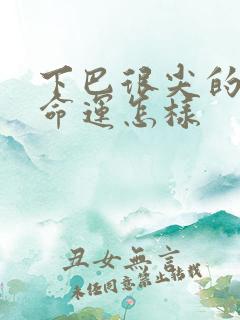 下巴很尖的
命运怎样
丑女無言
未经同意禁止转载